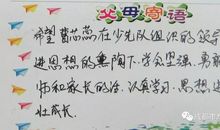 父母寄语
希望暂芯蕊在少先队组织的领导
进思想的熏陶下,学会坚强,勇敢
师和家长的话,认真学习,思想进
壮成长